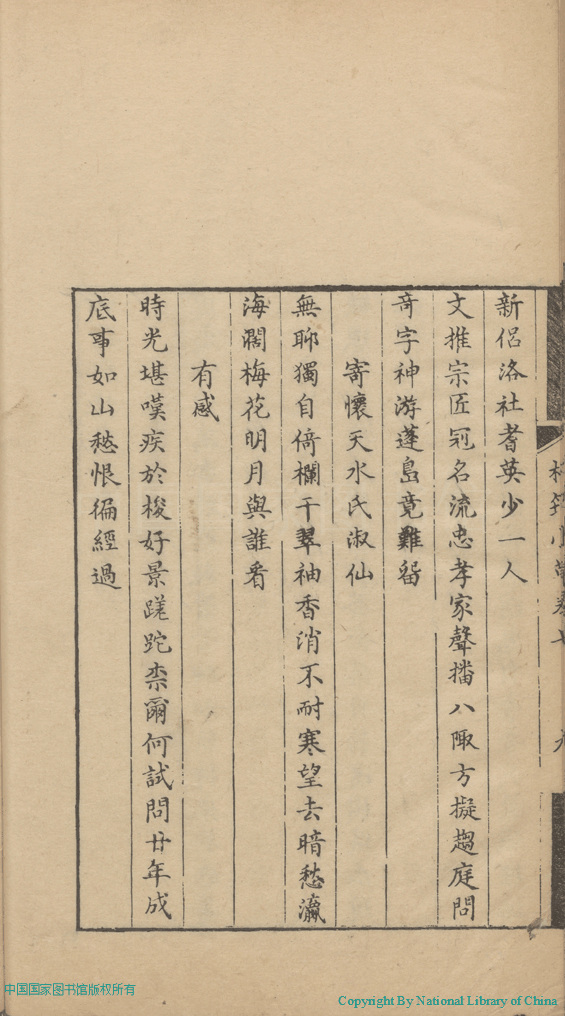 新侶洛社耆英少一人
文推宗匠冠名流忠孝家聲播八陬方擬趨庭問
奇字神游蓬島竟難留
寄懷天水氏淑仙
無聊獨自倚欄干翠袖香消不耐寒望去暗愁瀛
海濶梅花明月與誰看
有感
時光堪嘆疾於梭好景蹉跎柰爾何試問廿年成
底事如山愁恨徧經過
中国国家图书馆版权所有
Copyright By National Library of China